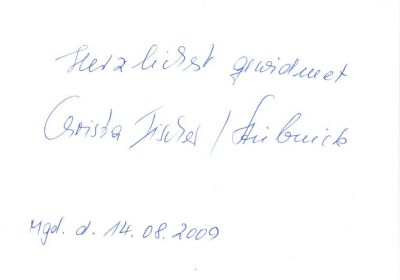 Herzlichst gewidmet
Christa Fischer /
Mgd. d. 14.08.2009